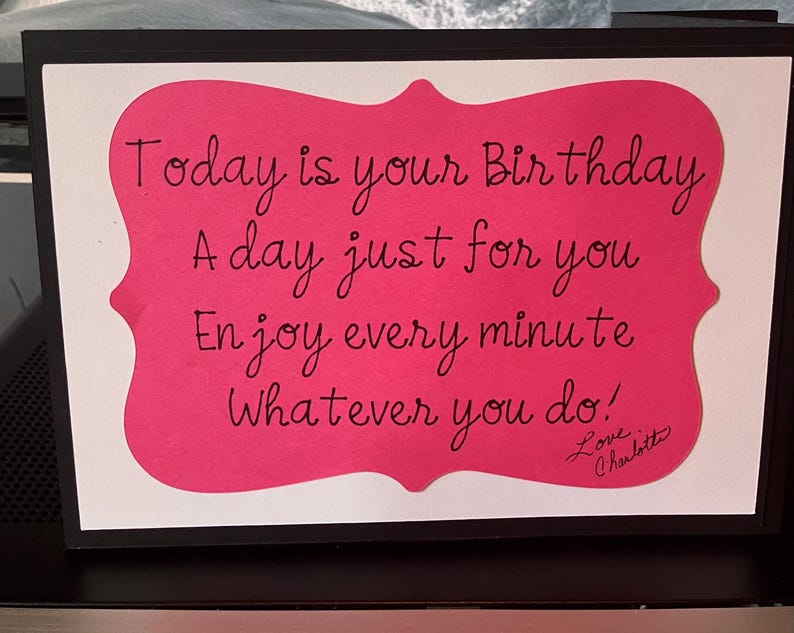 Today is your Birthday,
A day just for you
Enjoy every minute
Whatever you do!
Love
Charlotte